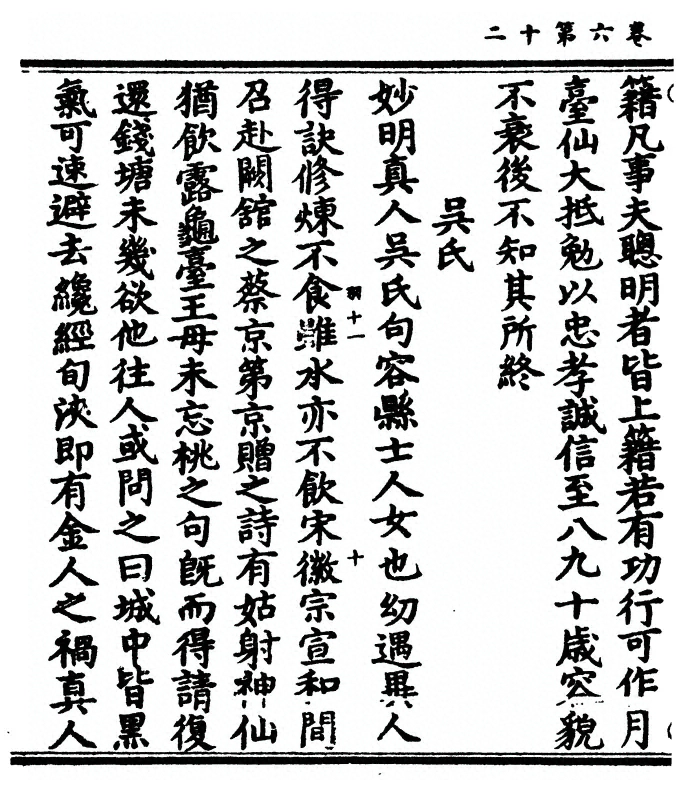 二十第六卷
籍凡事夫聰明者皆上籍若有功行可作月
臺仙大抵勉以忠孝誠信至八九十歲容貌
不衰後不知其所終
吳氏
妙明真人吳氏句容縣士人女也幼遇異人
羽十一
十
得訣修煉不食雖水亦不飲宋徽宗宣和間
召赴闕舘之蔡京第京贈之詩有姑射神仙
猶飲露龜臺王母未忘桃之句既而得請復
還錢塘未幾欲他往人或問之曰城中皆黑
氣可速避去纔經旬浹即有金人之禍真人